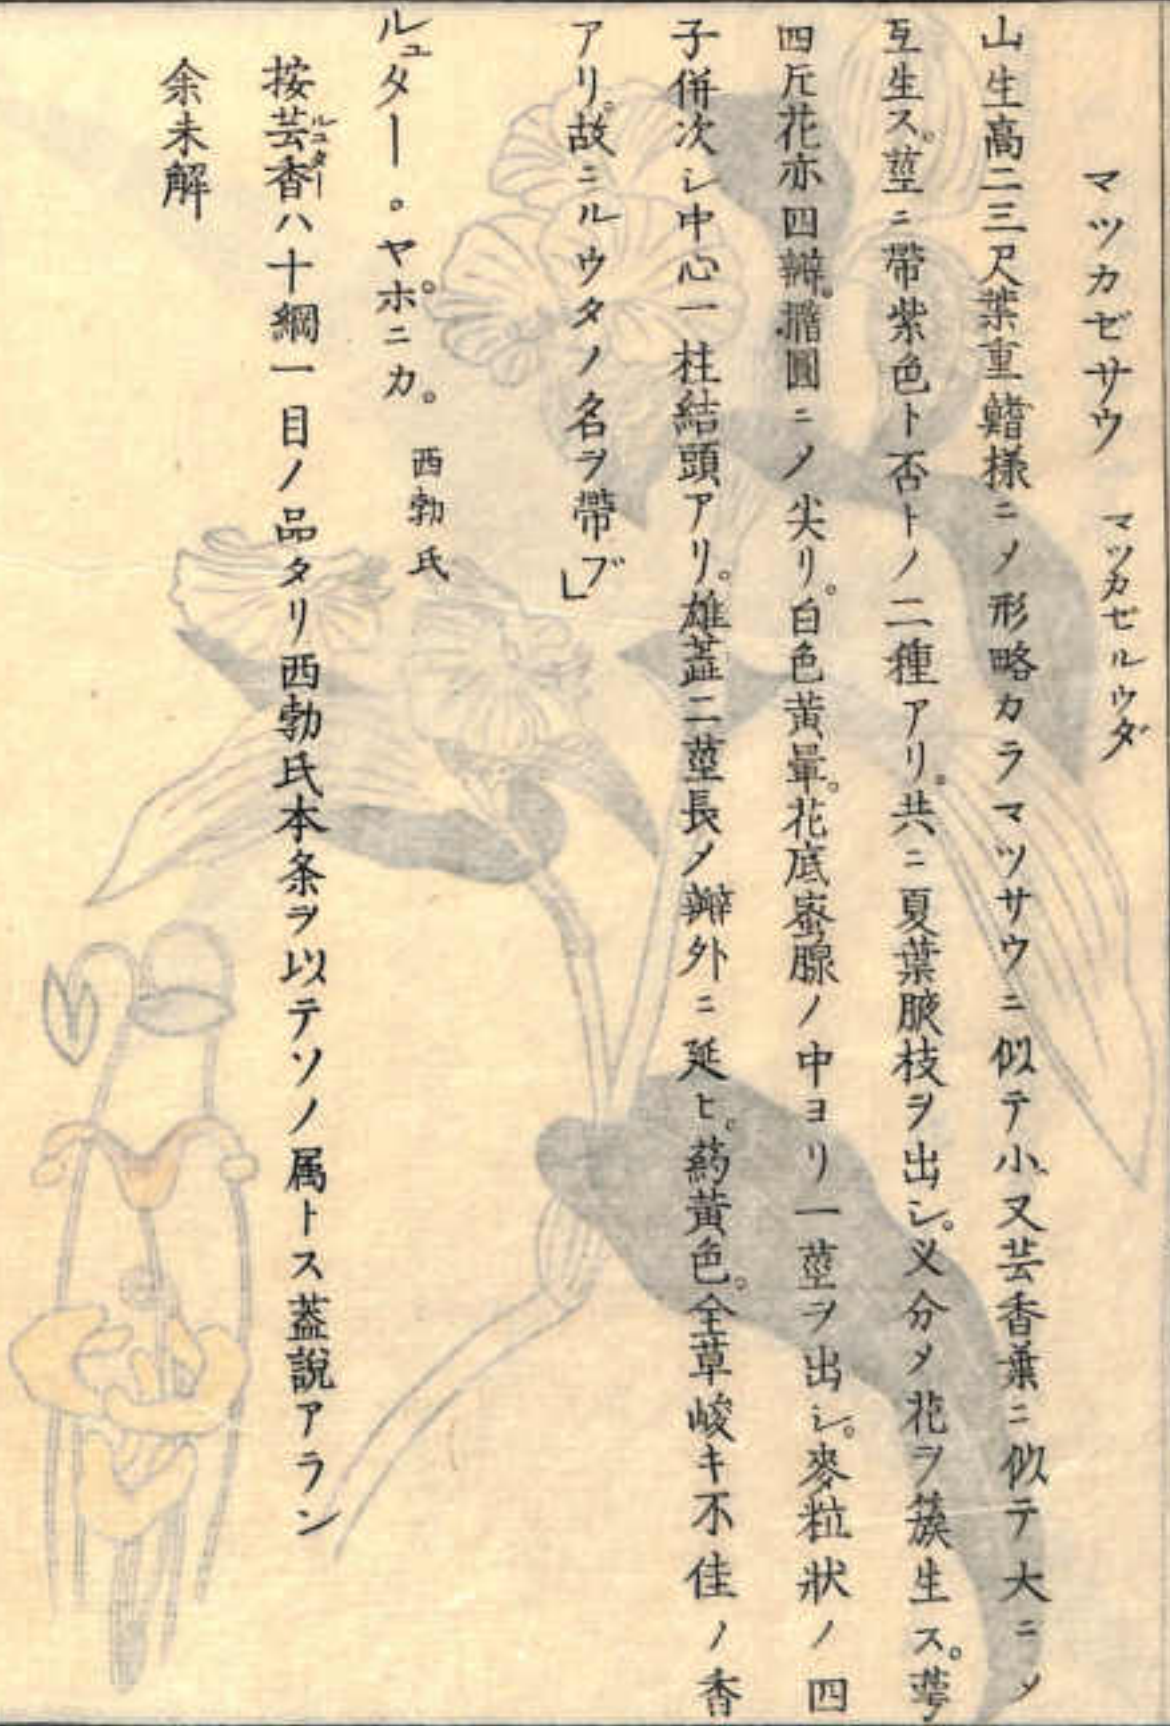 マツカゼサウ　マツカゼルウダ
山生高二三尺葉重鰭様ニメ形略カラマツサウニ似テ小、又芸香葉ニ似テ大ニメ
互生ス。莖ニ帶紫色ト否トノ二種アリ。共ニ夏葉腋枝ヲ出シ。叉分メ花ヲ簇生ス。萼
四斤花亦四瓣。橢圓ニメ尖リ。白色黃暈。花底蜜腺ノ中ヨリ一莖ヲ出シ。麥粒狀ノ四
子併次シ中心一柱結頭アリ。雄蕋二莖長メ瓣外ニ延ヒ。葯黃色。全草峻キ不佳ノ香
アリ。故ニルウタノ名ヲ帶ブ」
ルュター。ヤポニカ。　西勃氏
按芸香ルュターハ十綱一目ノ品タリ西勃氏本条ヲ以テソノ属トス蓋説アラン
余未解